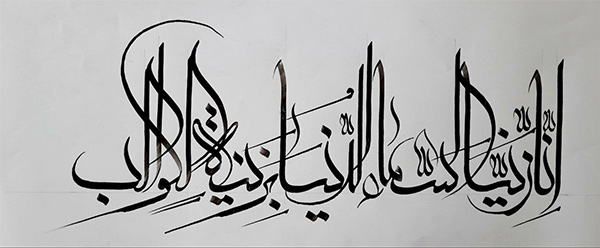 انا زينا السماء الدنيا بزينة الكواكب